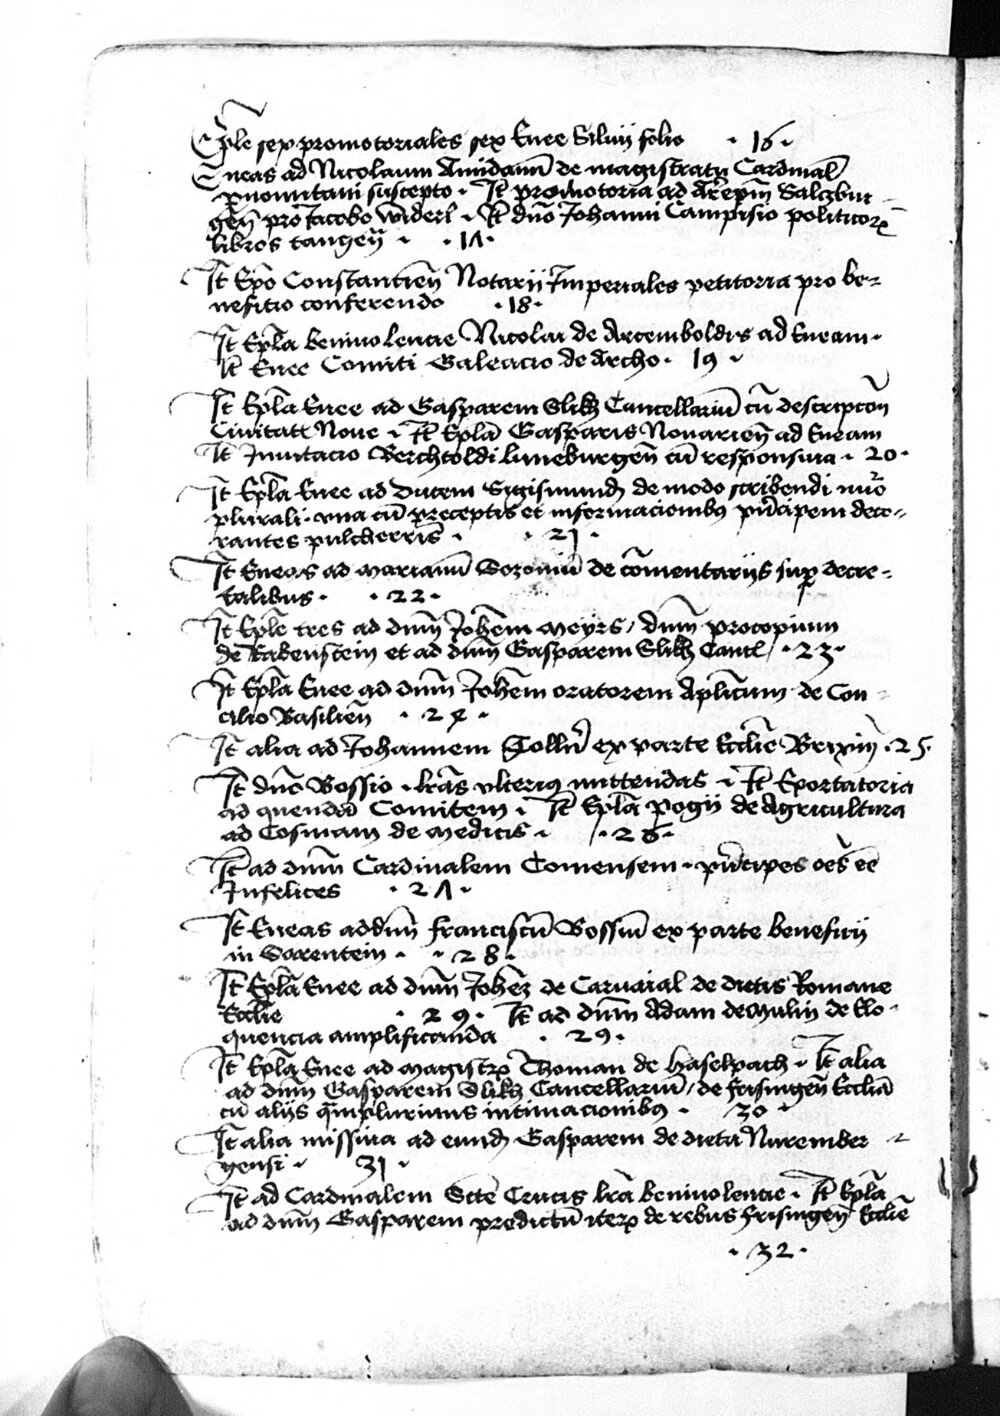 Eple sex promotoriales sex Enee Silvij folio · 16 ·
Eneas ad Nicolaum Amidanū de magistratu Cardinal̄
suscepto · It̄ promotoria ad Arep̄m Salczbur-
gen̄ pro Jacobo Widerl · It̄ dn̄o Johanni Campisio politicorꝝ
libros tangen̄ · · 1Λ ·
It̄ Ep̄o Constancien̄ Notarij Imperiales petitoria pro be-
nefitio conferendo · 18 ·
It̄ Epl̄a benivolencie Nicolai de Arcemboldis ad Eneam ·
It̄ Enee Comiti Galeacio de Archo · 19 ·
It̄ Epl̄a Enee ad Gasparem Slikͥ Cancellariū cū descripcōn
Civitatis Nove · It̄ Epl̄a Gasparis Novarien̄ ad Eneam
It̄ Invitacio Berchtoldi luneburgen̄ cū responsiva · 20 ·
It̄ Epl̄a Enee ad Ducem Sigismund de modo scribendi nūo
plurali · una cū preceptis et informacionibus principem deco-
rantes pulcherris · · 21 ·
It̄ Eneas ad Marianū Sozonū de cōmentarijs sup decre-
talibus · · 22 ·
It̄ Epl̄e tres ad dnm̄ Johēm Meyrs / dnm̄ procopium
de Rabenstein et ad dnm̄ Gasparem Slikͥ Cancͥ / · 23 ·
It̄ Epl̄a Enee ad dnm̄ Johēm oratorem Aplicum de Con-
cilio Basilien̄ · 24 ·
It̄ alia ad Johannem Tollnͥ ex parte Ecclie Brixin̄ · 25 ·
It̄ dn̄o Bossio · lrās ulterius mittendas · It̄ Exortatoria
ad quendā Comitem · It̄ Epl̄a pogij de Agricultura
ad Cosmam de Medicis · · 26 ·
It̄ ad dnm̄ Cardinalem Comensem · principes oēs eē
Infelices · 2Λ ·
It̄ Eneas ad dnm̄ franciscū Bossiū ex parte beneficij
in Sarentein · · 28 ·
It̄ Epl̄a Enee ad dnm̄ Johēz de Carvaial de dictis Romane
Ecclie · 29 · It̄ ad dnm̄ Adam de Mulin de Elo-
quencia amplificanda · 29 ·
It̄ Epl̄a Enee ad Magistrꝝ Thoman de Haselpach · It̄ alia
ad dnm̄ Gasparem Slikͥ Cancellariū / de frisingen̄ Ecclīa
cū alijs qmplurimis intimacionibus · 30 ·
It̄ alia missiva ad eund Gasparem de dieta Nurember-
gensi · 31 ·
It̄ ad Cardinalem Sctē Crucis lrā benivolencie · It̄ Epl̄a
ad dnm̄ Gasparem predictū iterꝝ de rebus frisingen̄ Ecclie
· 32 ·